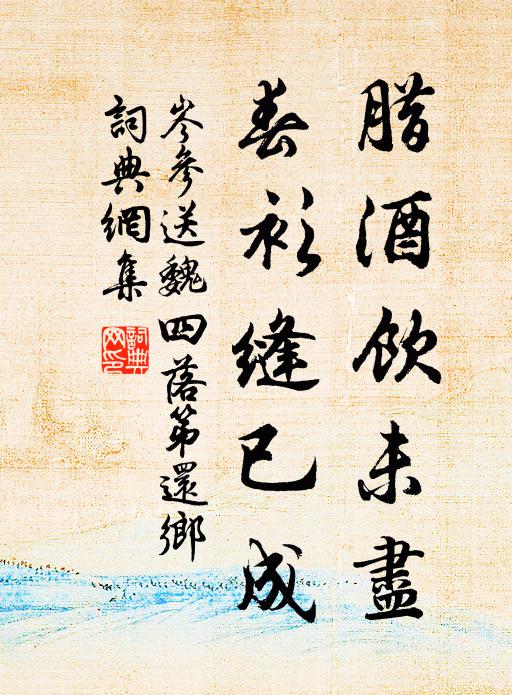 腊酒饮未盡
春衫缝已成
岑參送魏四落第還鄉
詞典網集
詞典網印